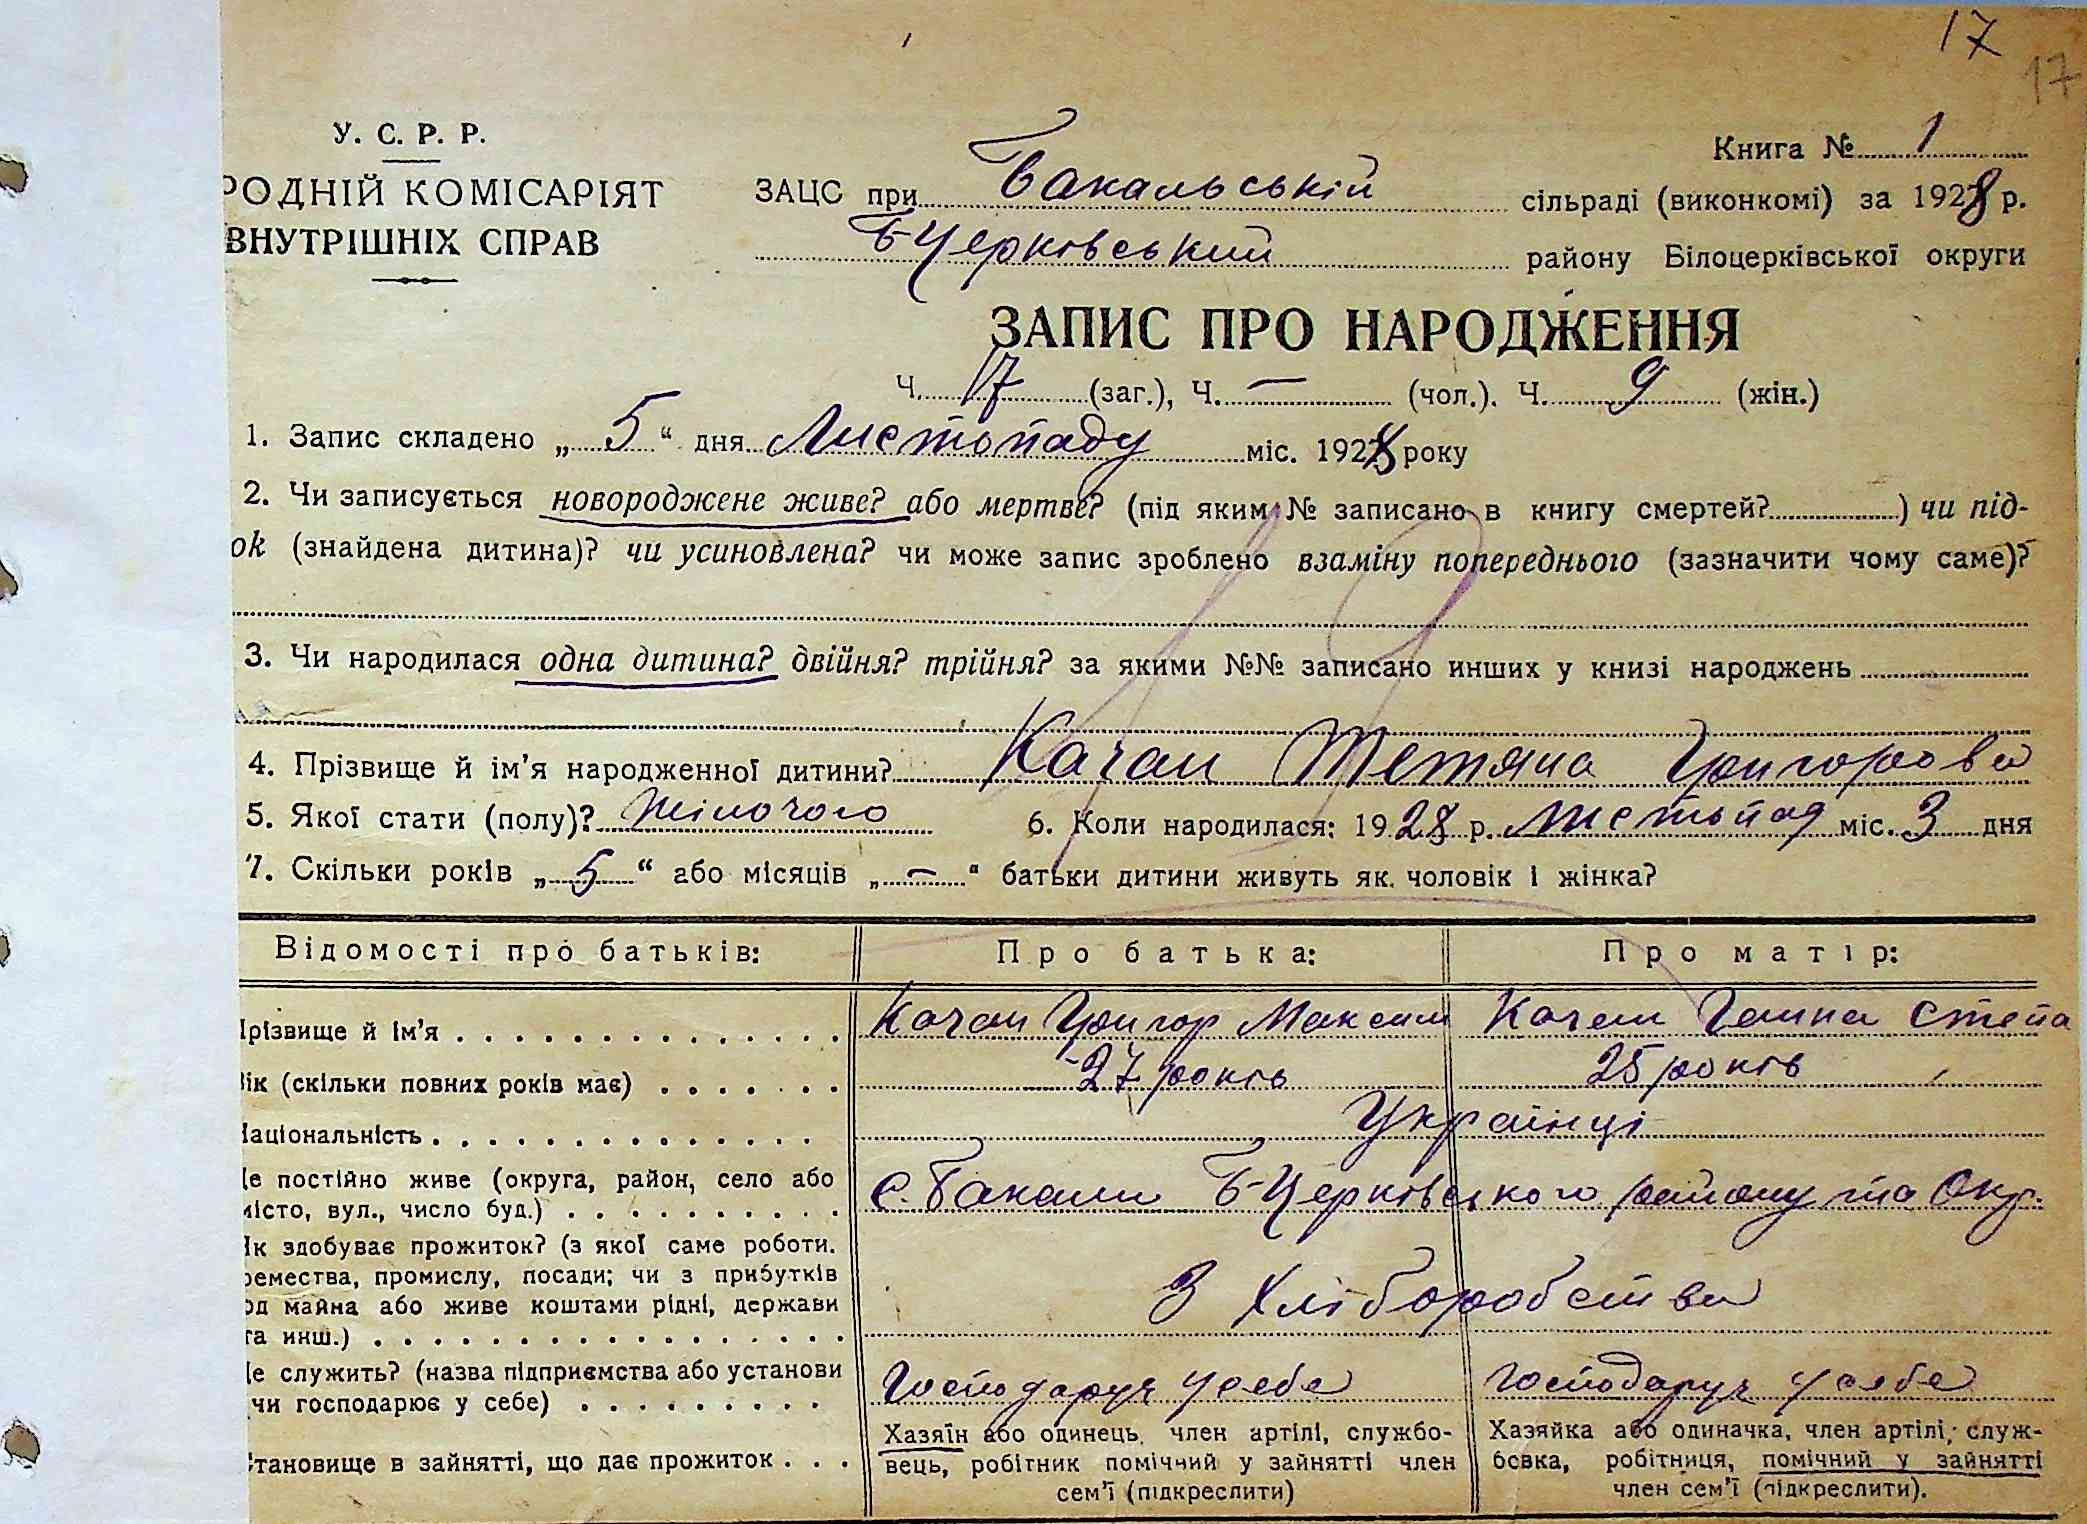 17
17
У. С. Р. Р.
РОДНІЙ КОМІСАРІЯТ
ВНУТРІШНІХ СПРАВ
Книга № 1
ЗАЦС при Бакальській сільраді (виконкомі) за 1928 р.
Б-Церківський району Білоцерківської округи
ЗАПИС ПРО НАРОДЖЕННЯ
Ч. 17 (заг.), Ч. — (чол.). Ч. 9 (жін.)
1. Запис складено „ 5 “ дня Листопаду міс. 1928 року
2. Чи записується новороджене живе? або мертве? (під яким № записано в книгу смертей? ) чи під-
ок (знайдена дитина)? чи усиновлена? чи може запис зроблено взаміну попереднього (зазначити чому саме)?
3. Чи народилася одна дитина? двійня? трійня? за якими №№ записано инших у книзі народжень
4. Прізвище й ім’я народженної дитини? Качан Тетяна Григорова
5. Якої стати (полу)? Жіночого 6. Коли народилася: 1928 р. Листопад міс. 3 дня
7. Скільки років „ 5 “ або місяців „ — “ батьки дитини живуть як чоловік і жінка?
Відомості про батьків: Про батька: Про матір:
Прізвище й ім’я Качан Григор Максим Качан Ганна Степа
Вік (скільки повних років має) 27 років 25 років
Національність Українці
Де постійно живе (округа, район, село або
місто, вул., число буд.) с. Бакали Б-Церківського району та Окр.
Як здобуває прожиток? (з якої саме роботи.
ремества, промислу, посади; чи з прибутків
од майна або живе коштами рідні, держави
та инш.) З Хліборобства
Де служить? (назва підприємства або установи
чи господарює у себе) Господарує у себе Господарує у себе
Становище в зайнятті, що дає прожиток
Хазяїн або одинець, член артілі, службо-
вець, робітник помічний у зайнятті член
сем’ї (підкреслити)
Хазяйка або одиначка, член артілі, служ-
бовка, робітниця, помічний у зайнятті
член сем’ї (підкреслити).